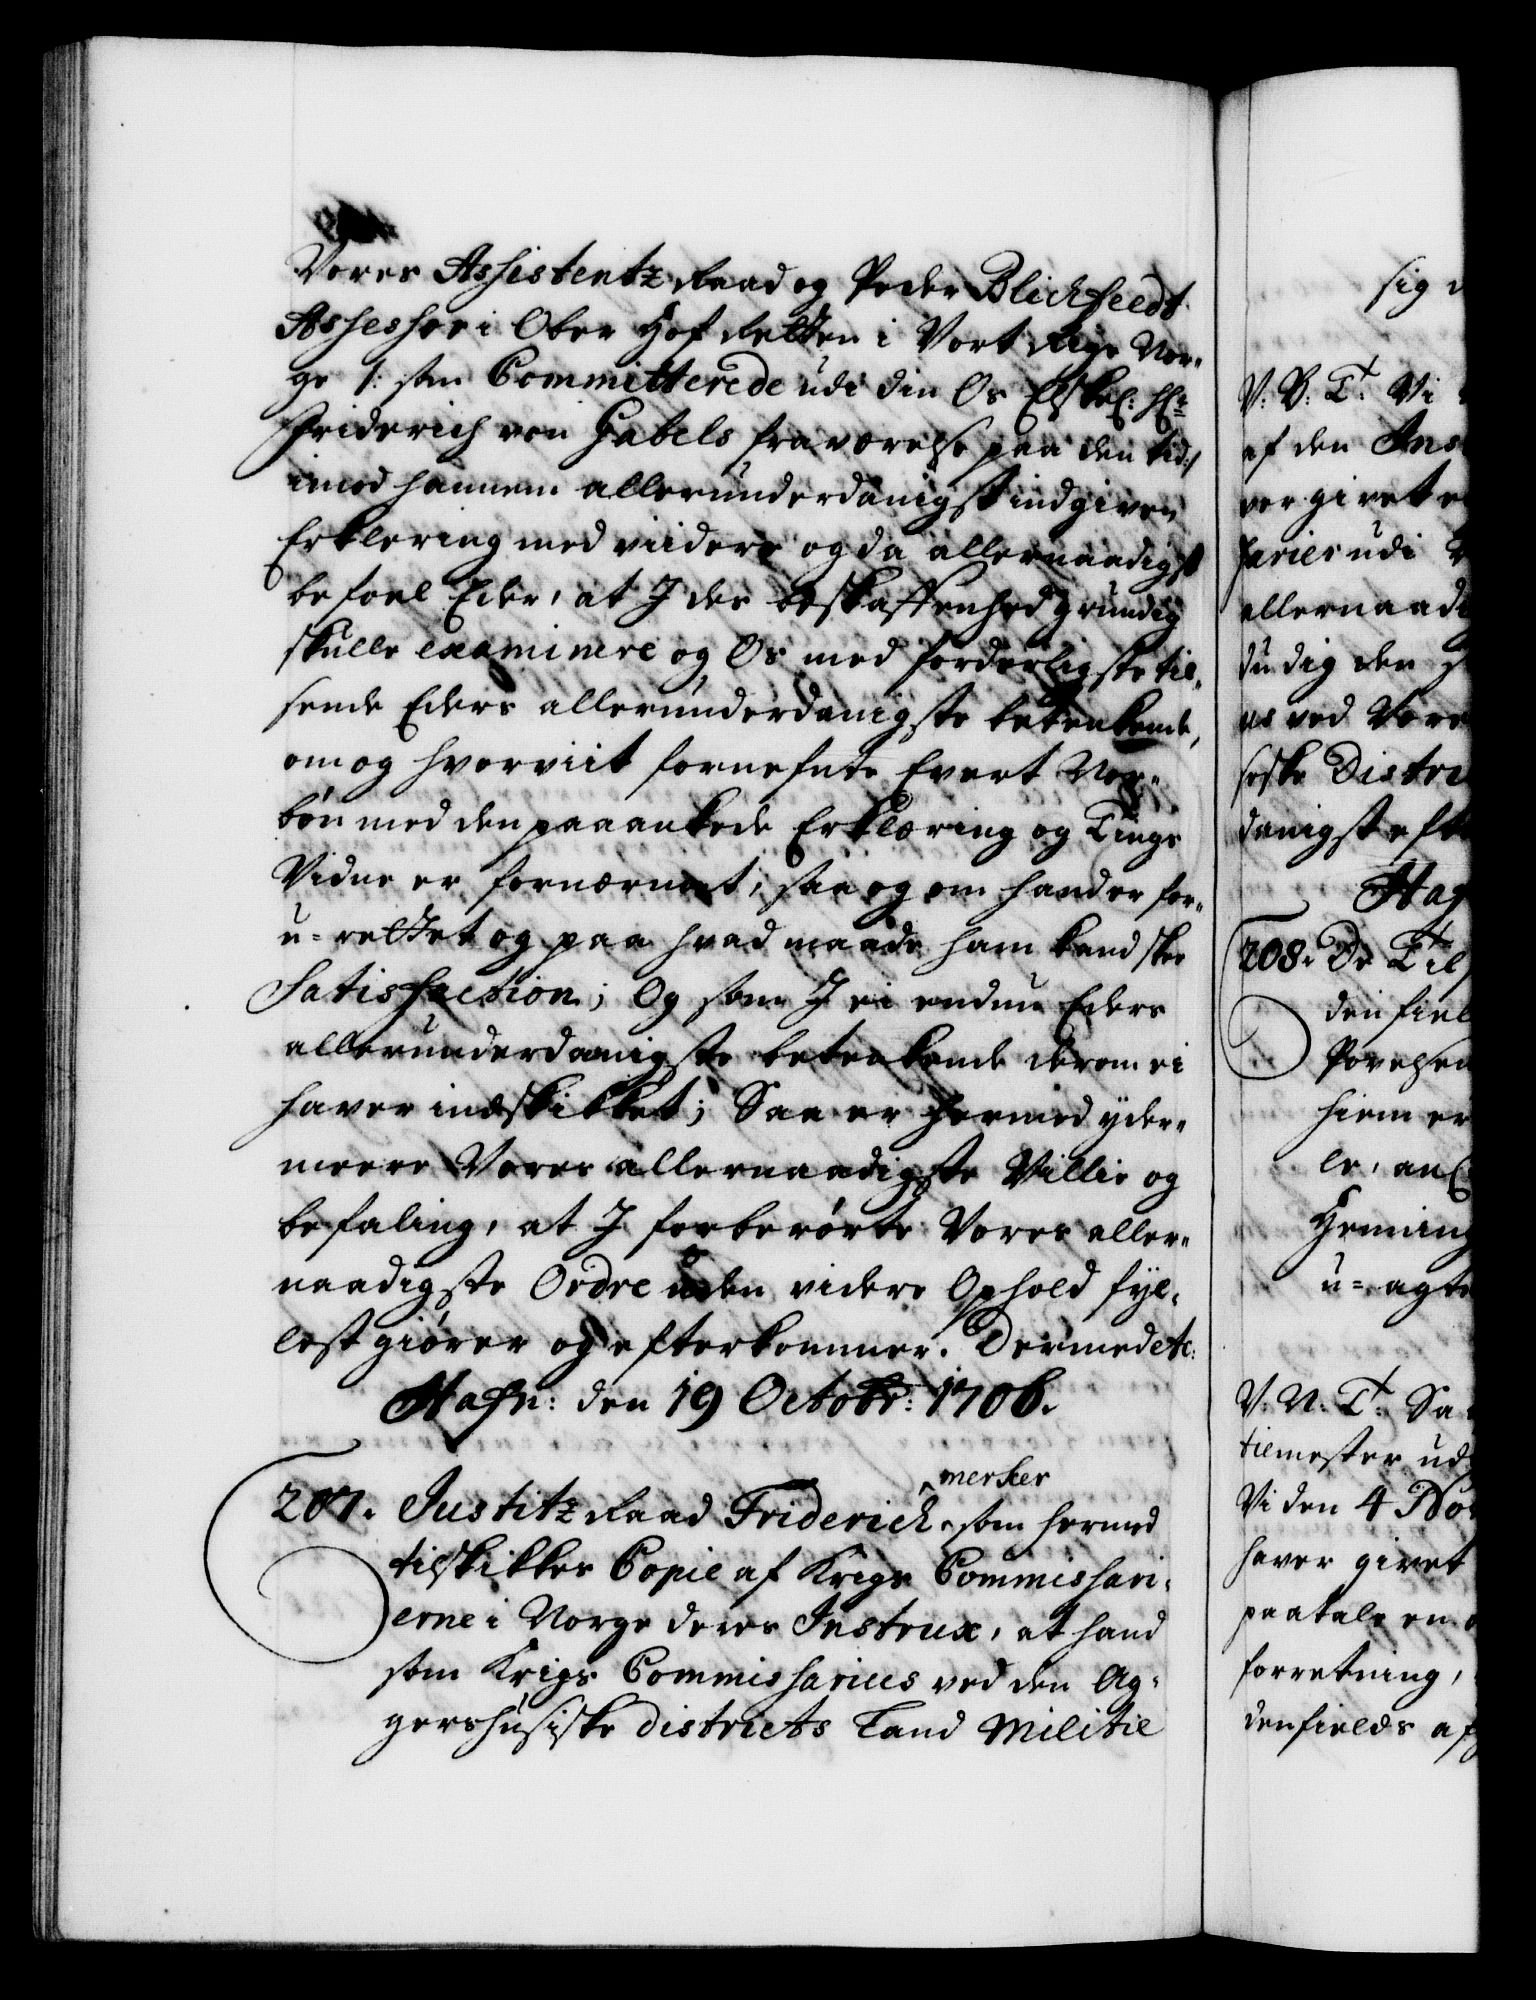 Vores Assistentz Raad og Peder Blichfeldt
Assessor i Ober Hof Retten i Vort Rige Nor-
ge /: som Committerede udi din Os Elskel: Hr:
Friderich von Gabels fraværelse paa den tid :/
imod hannem allerunderdanigst indgiven
Erklering med viidere og da allernaadigst
befoel Eder, at I des beskaffenhed grundig
skulle examinere og Os med forderligste til-
sende Eders allerunderdanigste betenkende,
om og hvorviit fornefnte Evert Nor-
bøn med den paaankede Erklæring og Tings
Vidne er fornærmet, saa og om hand er for-
u-rettet og paa hvad maade ham kand skee
Satisfaction; Og som I ei endnu Eders
allerunderdanigste betenkende derom ei
haver indskikket; Saa er hermed yder-
meere Vores allernaadigste Villie og
befaling, at I forberørte Vores aller-
naadigste Ordre uden videre Ophold fyl-
lest giører og efterkommer. Dermed etc:
Hafn: den 19 Octobr: 1706.
merker
207. Justitz Raad Friderich som hermed
tilskikkes Copie af Krigs Commissari-
erne i Norge deres Instrux, at hand
som Krigs Commissarius ved den Ag-
gershusiske districts Land Militie
sig
V: G: T: Vi
af den Ins
ver givet e
sarier udi
allernaadi
du dig den
es ved Vore
siske Distri
danigst efte
Haf
208. De Til
denfiel
Povelsen
hiem er
le, an
Heming
u-agt
V: G: T: Sa
tilmester ud
Vi den 4 No
haver givet
paatale en
forretning,
denfields af